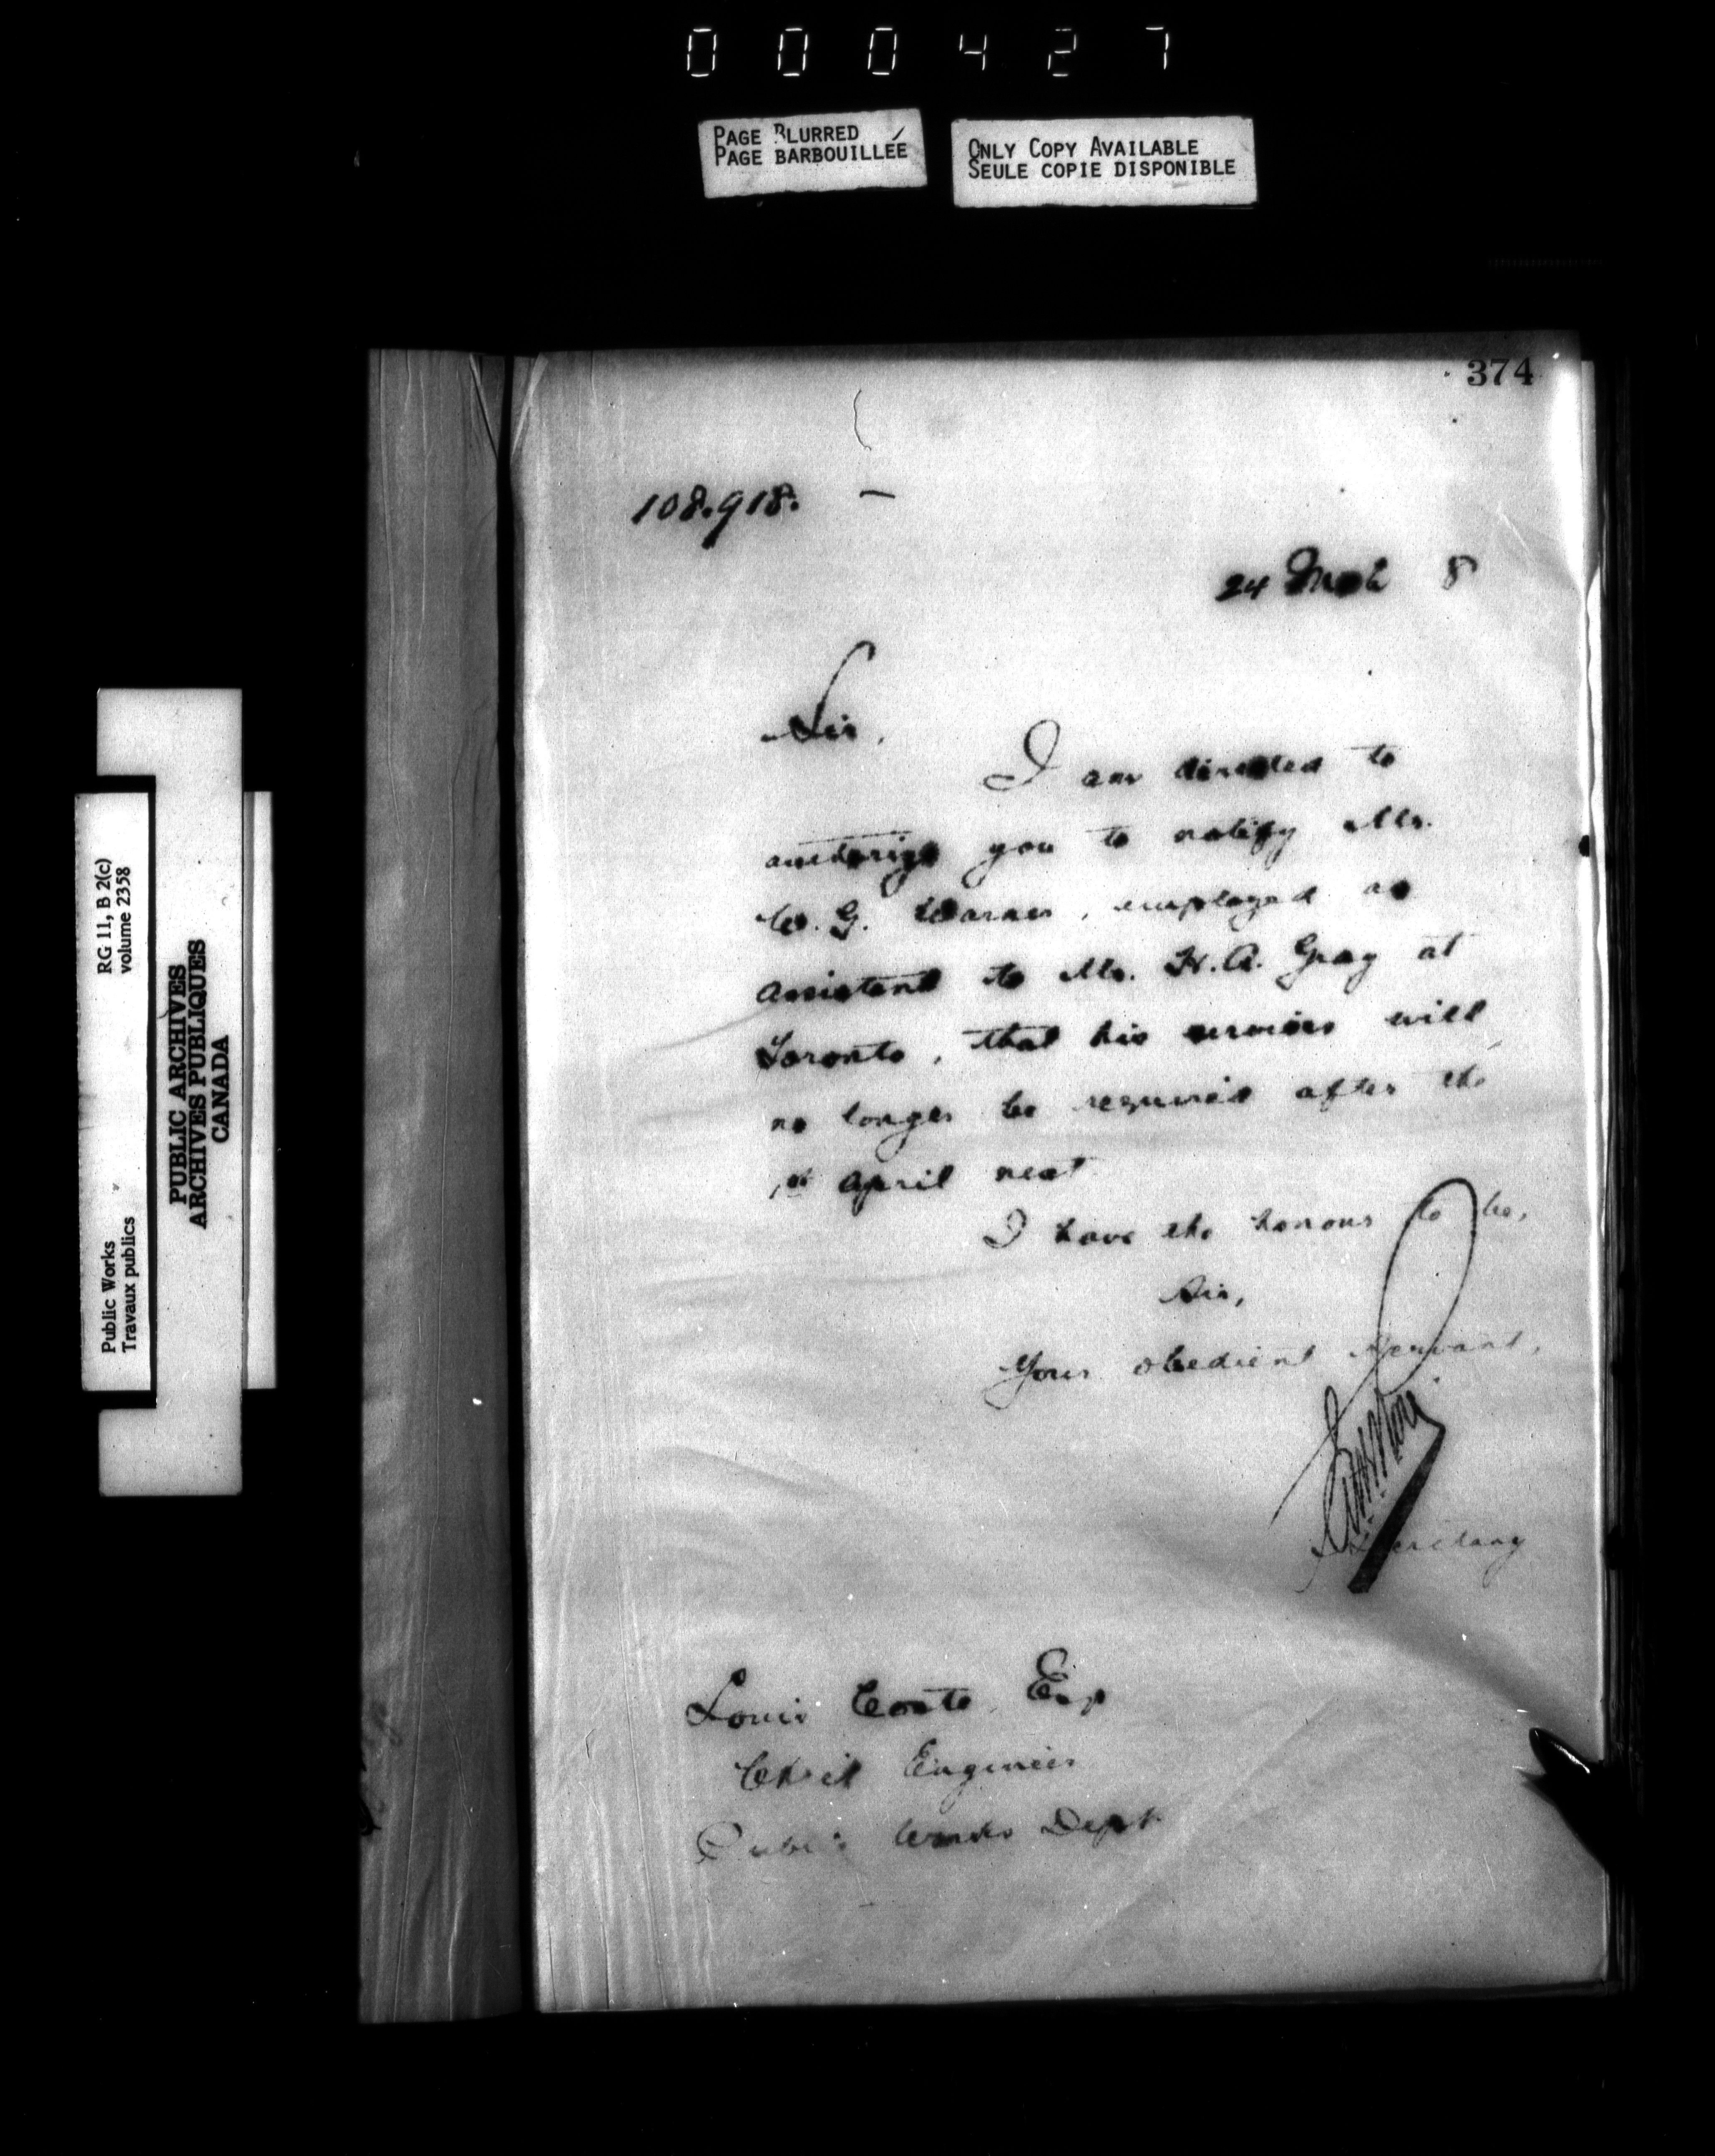 000427
PAGE BLURRED
PAGE BARBOUILLÉE
ONLY COPY AVAILABLE
SEULE COPIE DISPONIBLE
374
108.918.
24 Mch 8
Sir,
I am directed to
authorize you to notify Mr.
W. G. Warner, employed as
assistant to Mr. H. A. Gray at
Toronto, that his services will
no longer be required after the
1st April next
I have the honour to be,
Sir,
Your obedient servant,
Secretary
Louis Coste, Esq
Chief Engineer
Public Works Dept.
RG 11, B 2(c)
volume 2358
Public Works
Travaux publics
PUBLIC ARCHIVES
ARCHIVES PUBLIQUES
CANADA